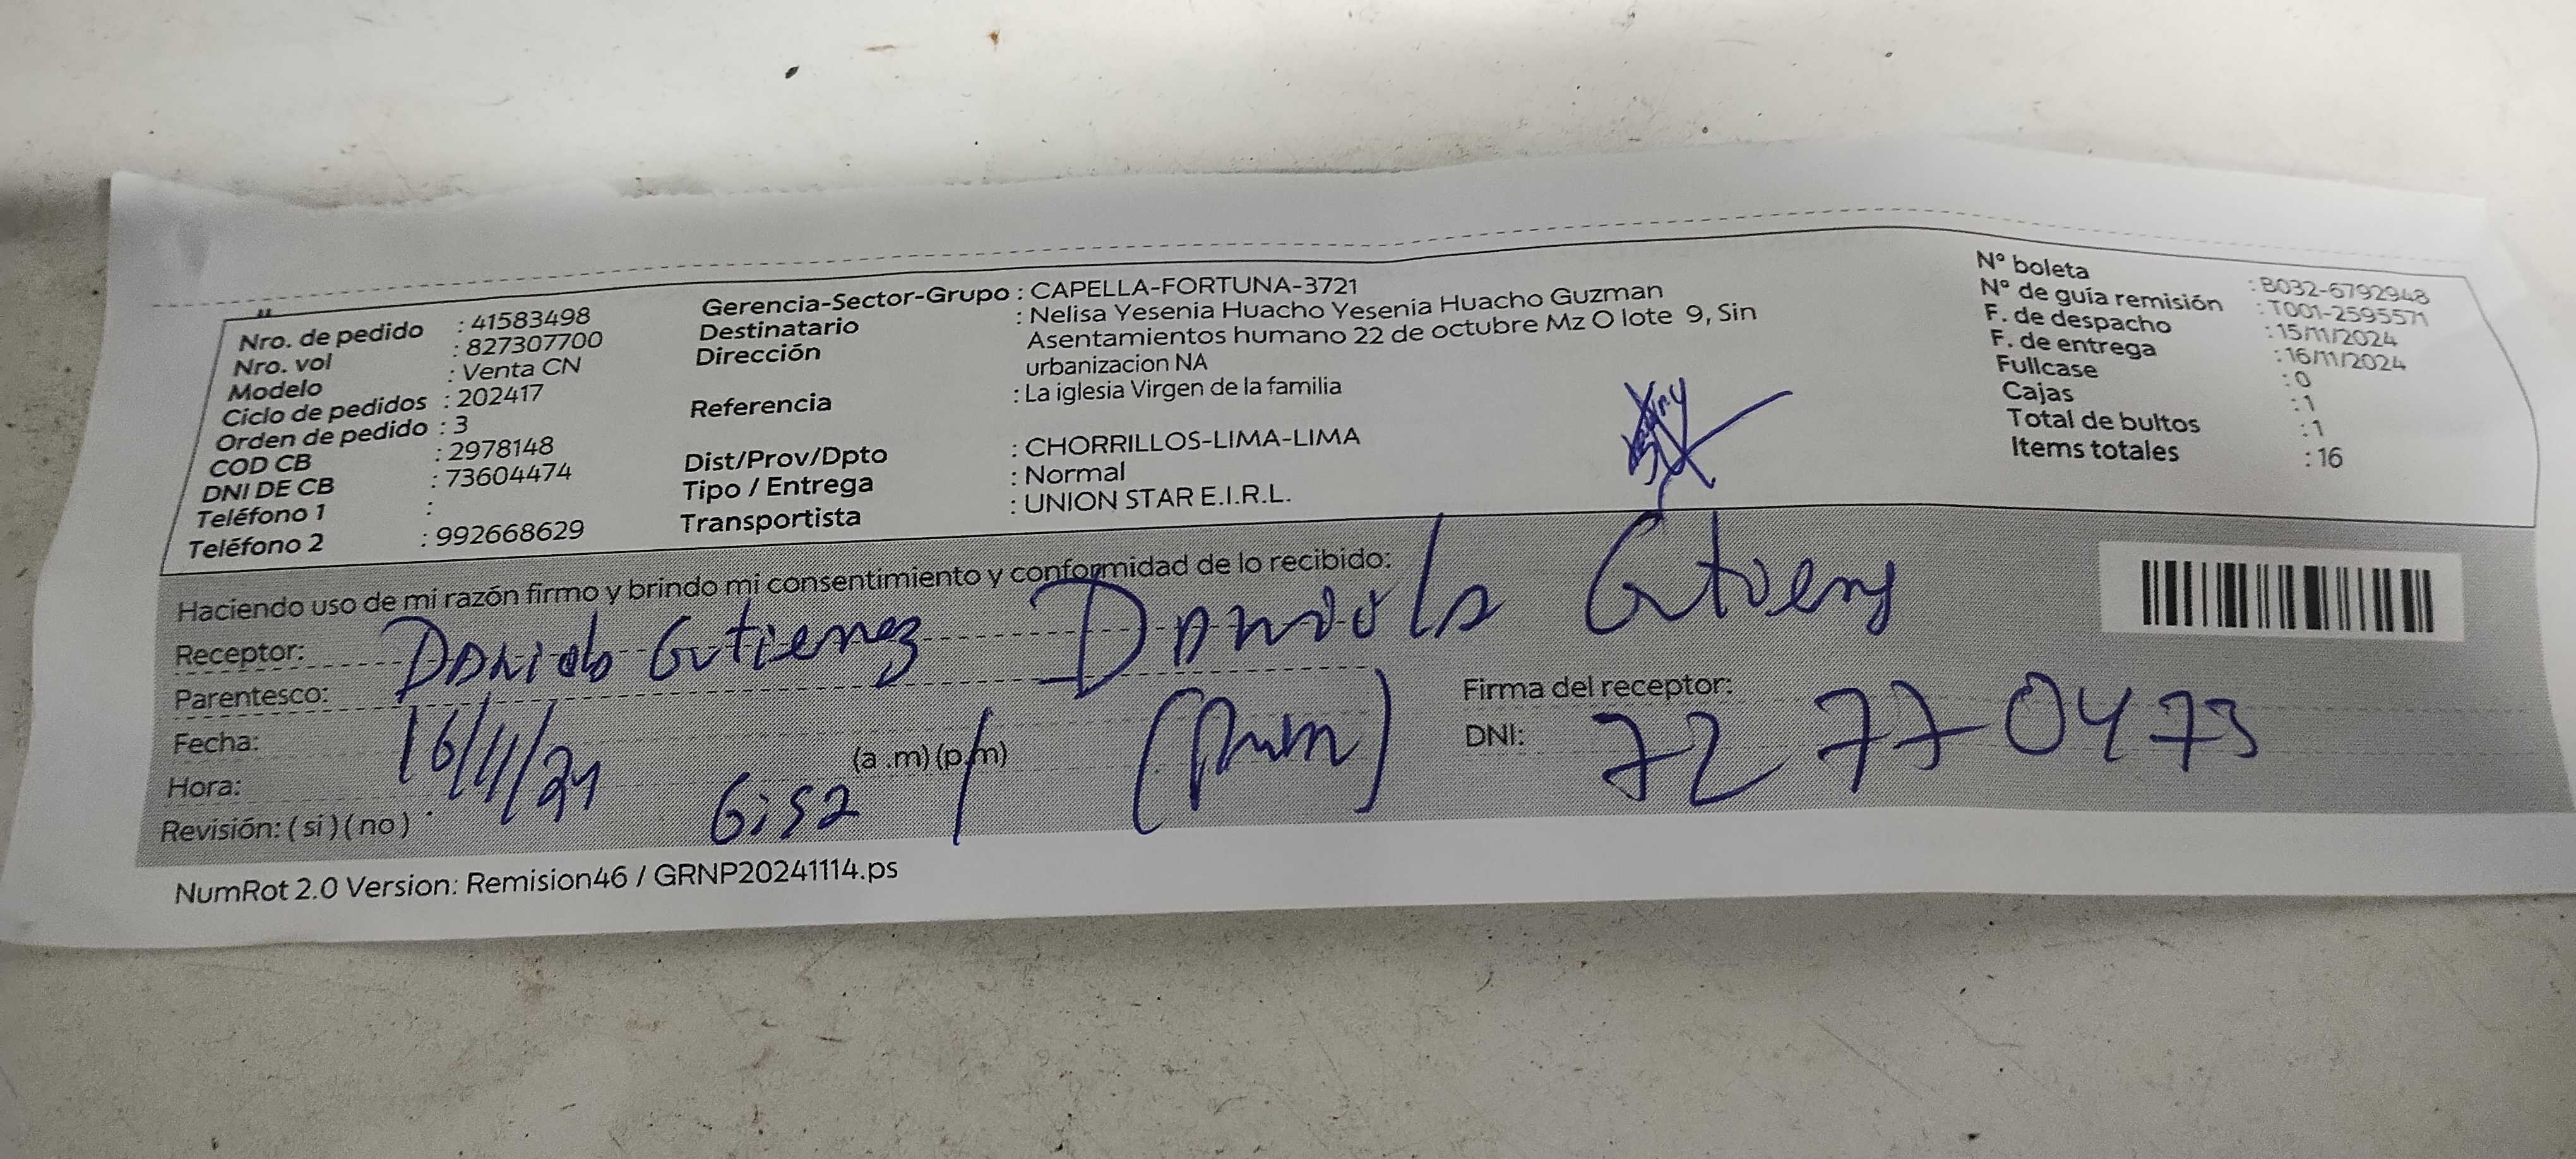 Nro. de pedido : 41583498
Nro. vol : 827307700
Modelo : Venta CN
Ciclo de pedidos : 202417
Orden de pedido : 3
COD CB : 2978148
DNI DE CB : 73604474
Teléfono 1 :
Teléfono 2 : 992668629
Gerencia-Sector-Grupo : CAPELLA-FORTUNA-3721
Destinatario : Nelisa Yesenia Huacho Yesenia Huacho Guzman
Dirección Asentamientos humano 22 de octubre Mz O lote 9, Sin
urbanizacion NA
Referencia : La iglesia Virgen de la familia
Dist/Prov/Dpto : CHORRILLOS-LIMA-LIMA
Tipo / Entrega : Normal
Transportista : UNION STAR E.I.R.L.
N° boleta : B032-6792948
N° de guía remisión : T001-2595571
F. de despacho : 15/11/2024
F. de entrega : 16/11/2024
Fullcase : 0
Cajas : 1
Total de bultos : 1
Items totales : 16
Haciendo uso de mi razón firmo y brindo mi consentimiento y conformidad de lo recibido:
Receptor: Gutierrez
Parentesco:
Fecha: 16/11/24
Hora: 6:52 (a .m) (p.m)
Revisión: ( si ) ( no )
Firma del receptor:
DNI: 72770473
NumRot 2.0 Version: Remision46 / GRNP20241114.ps